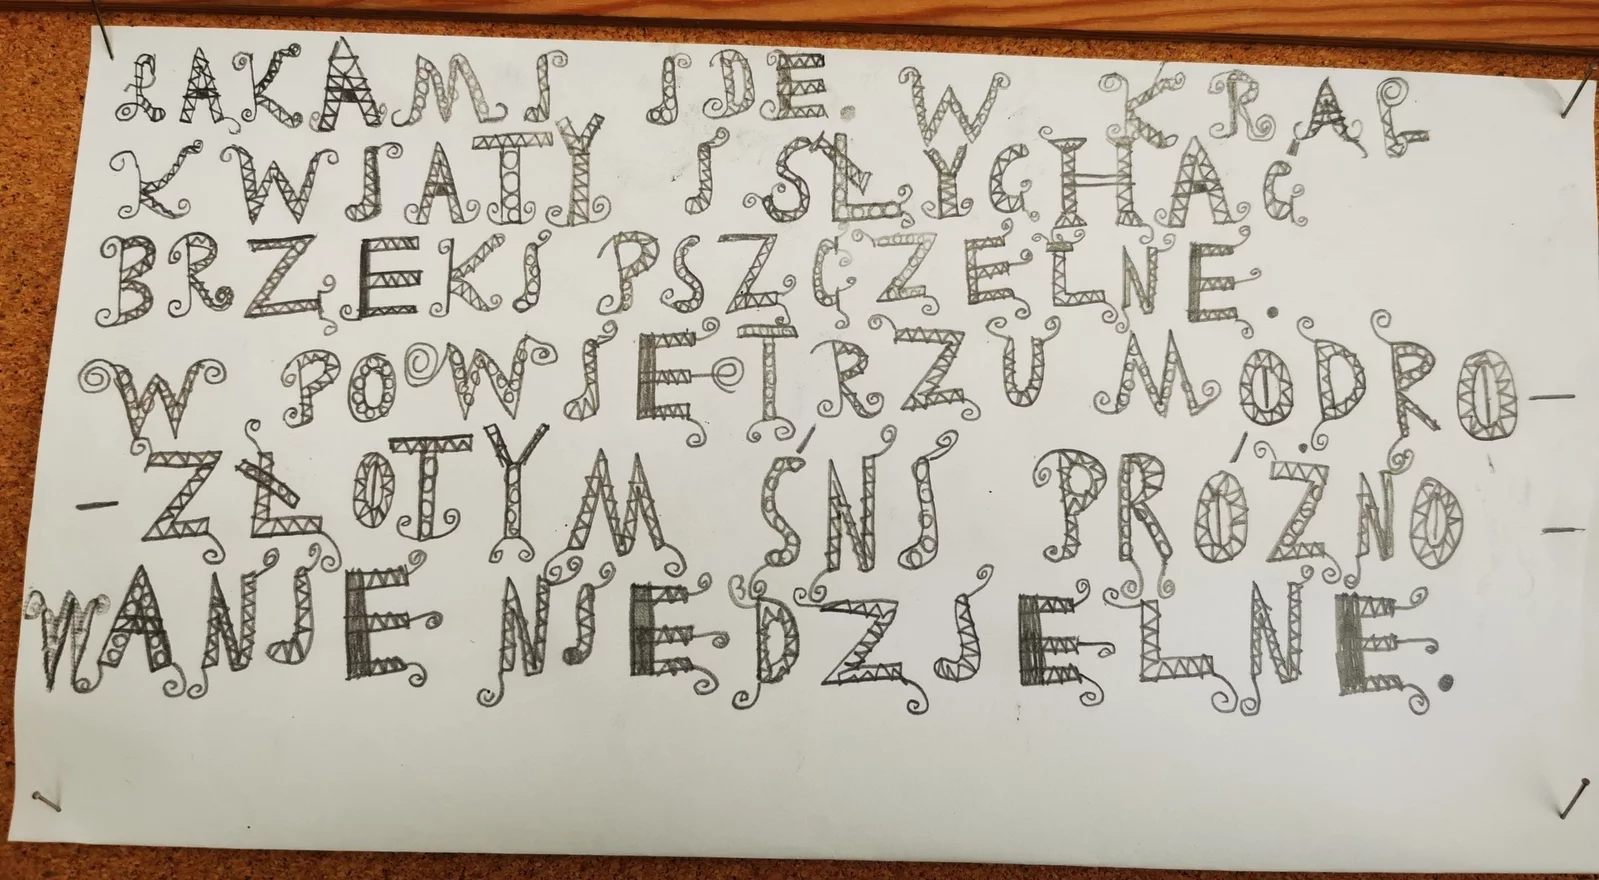 ŁAKAMI IDE. W KRAG
KWIATY I SŁYCHAĆ
BRZEKI PSZCZELNE.
W POWIETRZU MODRO-
-ZŁOTYM ŚNI PRÓŻNO-
WANIE NIEDZIELNE.